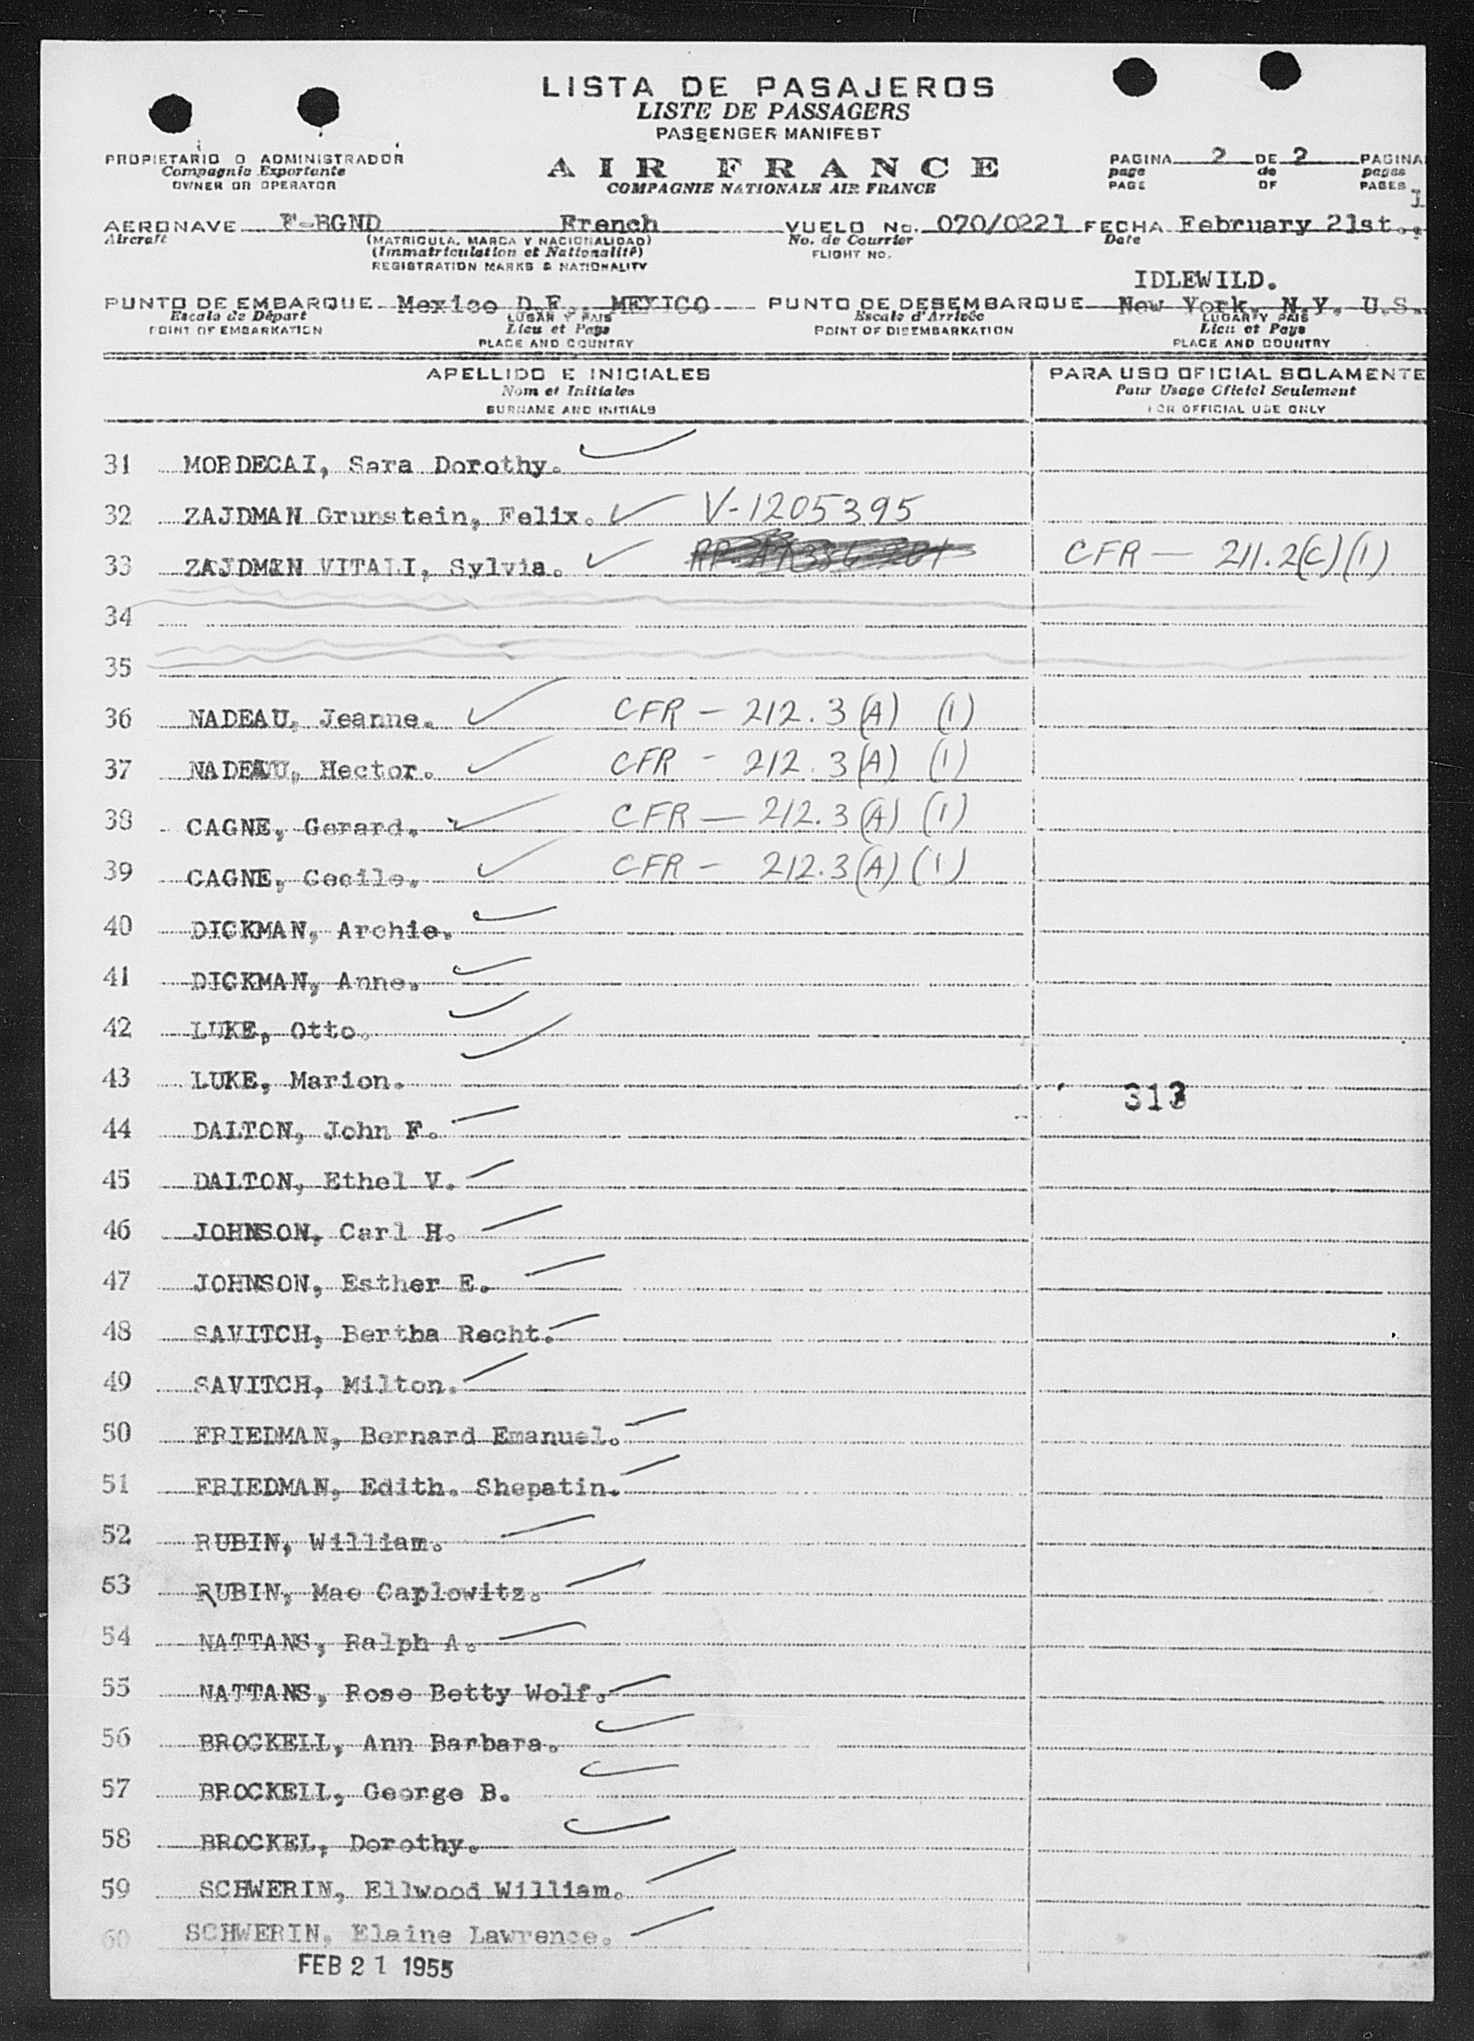 LISTA DE PASAJEROS
LISTE DE PASSAGERS
PASSENGER MANIFEST
PROPIETARIO O ADMINISTRADOR
Compagnie Exportante
OWNER OR OPERATOR
AIR FRANCE
COMPAGNIE NATIONALE AIR FRANCE
PAGINA 2 DE 2 PAGINA
page de pages
PAGE OF PAGES
AERONAVE F-BGND French VUELO No. 070/0221 FECHA February 21st.,
Aircraft (MATRICULA, MARCA Y NACIONALIDAD) No. de Courrier Date
(Immatriculation et Nationalité) FLIGHT NO.
REGISTRATION MARKS & NATIONALITY
IDLEWILD.
PUNTO DE EMBARQUE Mexico D.F., MEXICO PUNTO DE DESEMBARQUE New York, N.Y. U.S.
Escale de Départ LUGAR Y PAIS Escale d'Arrivée LUGAR Y PAIS
POINT OF EMBARKATION Lieu et Pays POINT OF DISEMBARKATION Lieu et Pays
PLACE AND COUNTRY PLACE AND COUNTRY
APELLIDO E INICIALES PARA USO OFICIAL SOLAMENTE
Nom et Initiales Pour Usage Officiel Seulement
SURNAME AND INITIALS FOR OFFICIAL USE ONLY
31 MORDECAI, Sara Dorothy.
32 ZAJDMAN Grunstein, Felix. V-1205395
33 ZAJDMAN VITALI, Sylvia. CFR — 211.2(C)(1)
34
35
36 NADEAU, Jeanne. CFR - 212.3(A) (1)
37 NADEAU, Hector. CFR - 212.3(A) (1)
38 CAGNE, Gerard. CFR — 212.3(A) (1)
39 CAGNE, Cecile. CFR - 212.3(A) (1)
40 DICKMAN, Archie.
41 DICKMAN, Anne.
42 LUKE, Otto.
43 LUKE, Marion.
313
44 DALTON, John F.
45 DALTON, Ethel V.
46 JOHNSON, Carl H.
47 JOHNSON, Esther E.
48 SAVITCH, Bertha Recht.
49 SAVITCH, Milton.
50 FRIEDMAN, Bernard Emanuel.
51 FRIEDMAN, Edith. Shepatin.
52 RUBIN, William.
53 RUBIN, Mae Caplowitz.
54 NATTANS, Ralph A.
55 NATTANS, Rose Betty Wolf.
56 BROCKELL, Ann Barbara.
57 BROCKELL, George B.
58 BROCKEL, Dorothy.
59 SCHWERIN, Ellwood William.
60 SCHWERIN, Elaine Lawrence.
FEB 21 1955